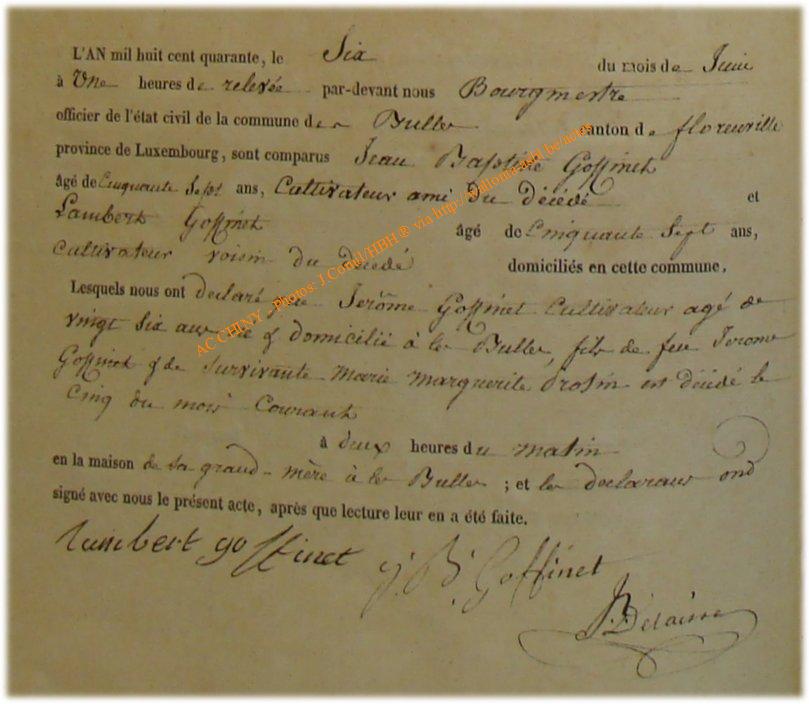 L'AN mil huit cent quarante, le Six du mois de Juin
à Une heures de relevée par-devant nous Bourgmestre
officier de l'état civil de la commune de la Bulles canton de florenville
province de Luxembourg, sont comparus Jean Baptiste Goffinet
âgé de Cinquante Sept ans, Cultivateur ami du décédé et
Lambert Goffinet âgé de Cinquante Sept ans,
Cultivateur voisin du décédé domiciliés en cette commune.
Lesquels nous ont déclaré que Jerôme Goffinet Cultivateur agé de
vingt six ans né & domicilié à les Bulles, fils de feu Jerome
Goffinet & de survivante Marie Marguerite est décédé le
Cinq du mois Courant
à deux heures du matin
en la maison de sa grand-mère à les Bulles ; et les declarans ond
signé avec nous le présent acte, après que lecture leur en a été faite.
lambert goffinet J. B. Goffinet
AC CHINY - Photos: J.Cornil/HBH ® via http://willoma.agd.be/actes